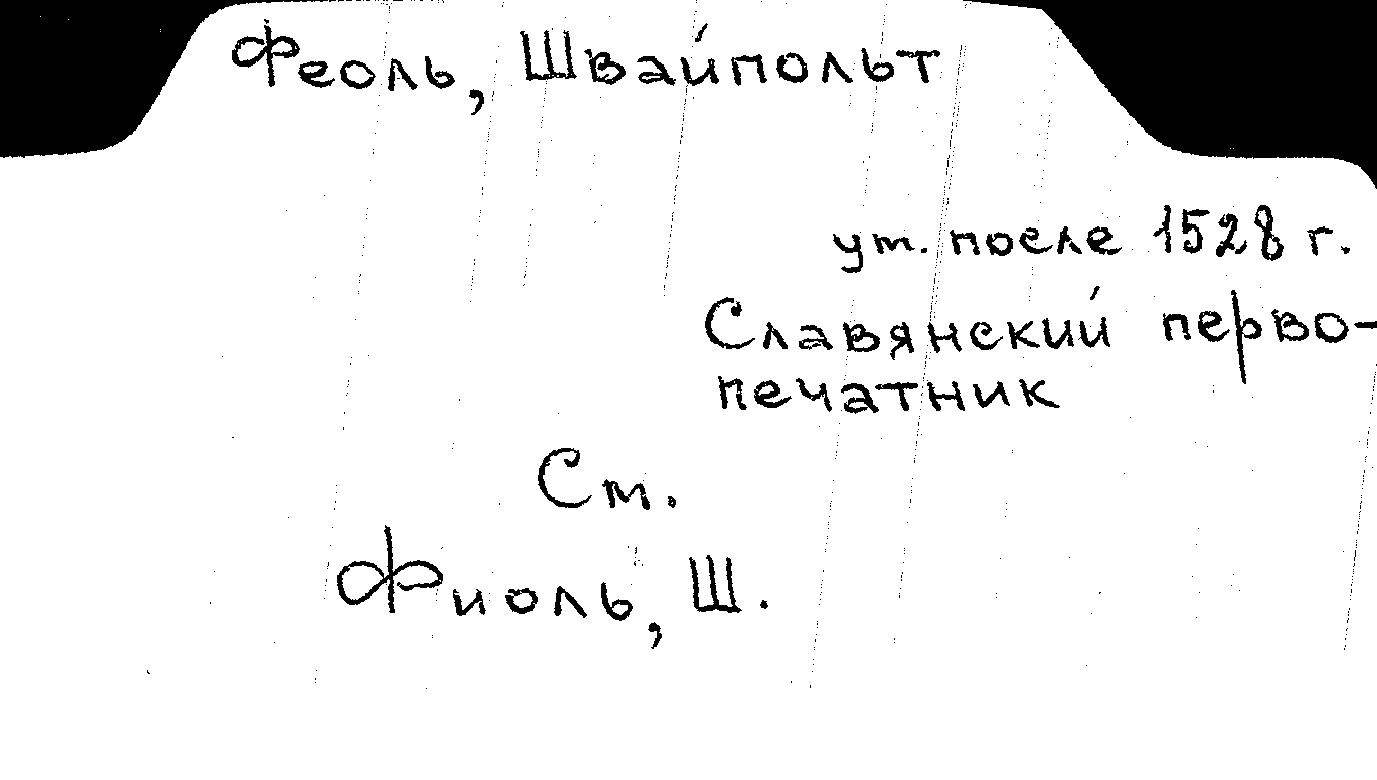 Феоль, Швайпольт
ум. после 1528 г.
Славянский перво-
печатник
См.
Фиоль, Ш.